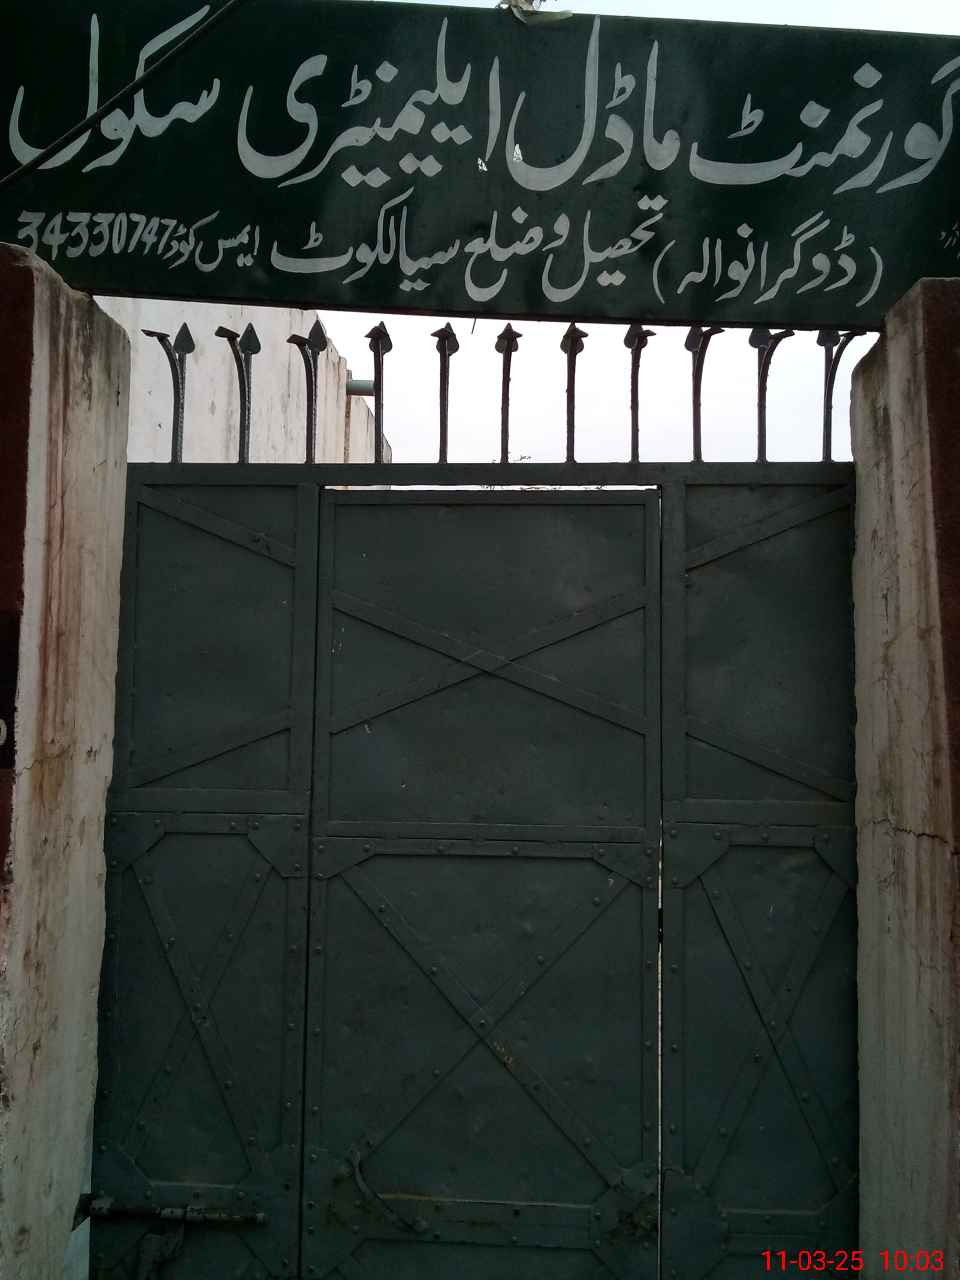 گورنمنٹ ماڈل ایلیمنٹری سکول
(ڈوگرانوالہ) تحصیل و ضلع سیالکوٹ ایمس کوڈ 34330747
11-03-25 10:03